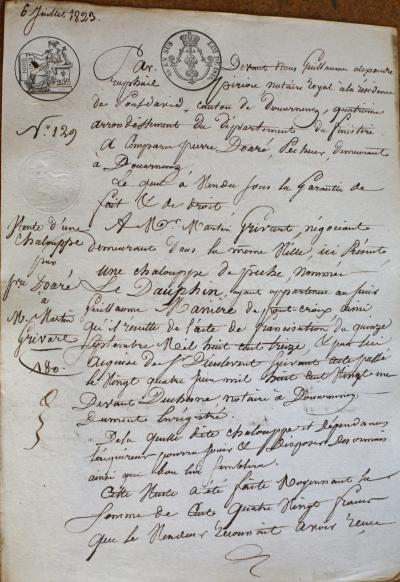 6 Juillet 1823.
N.º 129
Par Devant Nous Guillaume alexandre
raphaël notaire royal à la résidence
de Pouldavid, canton de Douarnenez, quatrième
arrondissement du département du finistère
A Comparu pierre Doaré, pêcheur, demeurant
à Douarnenez
Le quel à Vendu sous la Garantie de
fait & de droit
Vente d'une
Chalouppe
par
pre Doaré
à
Mr Martin
Grivart
180
A Mr. Martin Grivart, négociant
demeurant dans la même Ville, ici Présent
une chalouppe de pêche nommée
Le Dauphin, ayant appartenue au sieur
Guillaume Manière de pont-croix ainsi
qu'il résulte de l'acte de francisation du quinze
septembre Mil huit cent treize & par lui
acquise de Sr suivant acte passé
le Vingt quatre juin mil huit cent Vingt une
Devant notaire à Douarnenez
Dument Enrégistré
De la quelle dite chalouppe et dépendances
l'acquéreur pourra jouir & disposer désormais
ainsi que bon lui semblera.
Cette Vente a été faite Moyennant la
somme de Cent quatre Vingt francs
que le Vendeur reconnait avoir reçue